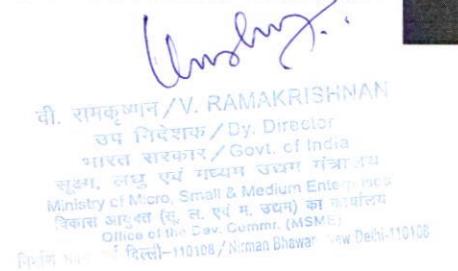 वी. रामकृष्णन/V. RAMAKRISHNAN
उप निदेशक/Dy. Director
भारत सरकार/Govt. of India
सूक्ष्म, लघु एवं मध्यम उद्यम मंत्रालय
Ministry of Micro, Small & Medium Enterprises
विकास आयुक्त (सू. ल. एवं म. उद्यम) का कार्यालय
Office of the Dev. Commr. (MSME)
दिल्ली-110108/Nirman Bhawan New Delhi-110108